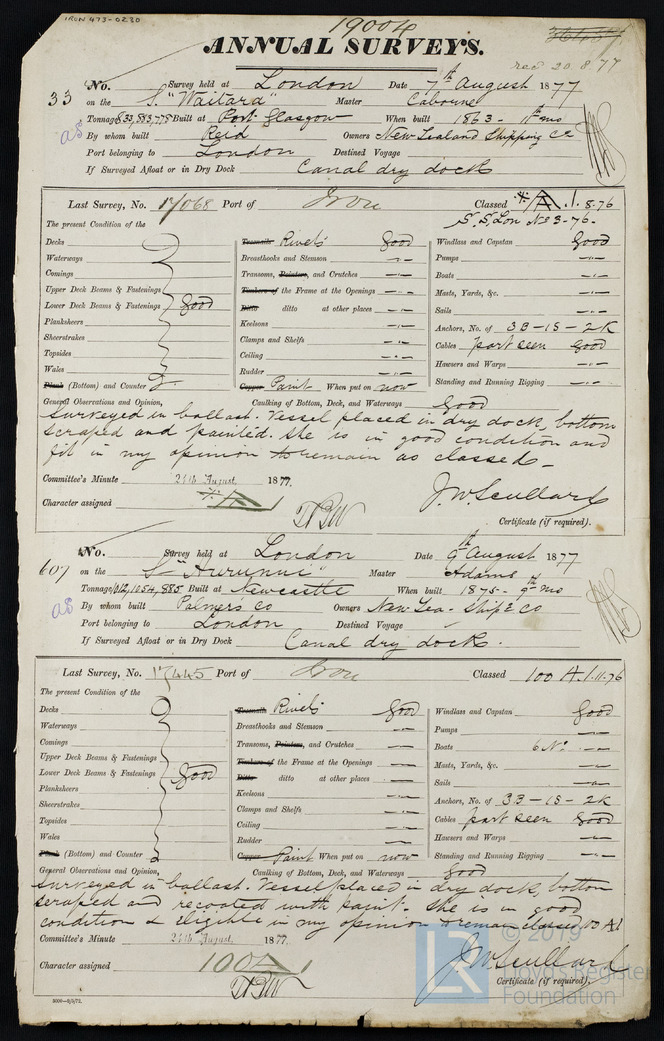 IRON 473-0230
19004
ANNUAL SURVEYS.
rec 20.8.77
33 No. Survey held at London Date 7th August 1877
on the S. "Waitara" Master Cabourne
Tonnage 833,883,775 Built at Port Glasgow When built 1863 - 11th mo
as By whom built Reid Owners New Zealand Shipping Co
Port belonging to London Destined Voyage
If Surveyed Afloat or in Dry Dock Canal dry dock
Last Survey, No. 17068 Port of Iron Classed A.1. 8.76
S.S.Lon No 3-76-
The present Condition of the
Decks
Waterways
Comings
Upper Deck Beams & Fastenings
Lower Deck Beams & Fastenings good
Planksheers
Sheerstrakes
Topsides
Wales
Plank (Bottom) and Counter
Treenails Rivets good
Breasthooks and Stemson -"-
Transoms, Pointers, and Crutches -"-
Timbers of the Frame at the Openings -"-
Ditto ditto at other places -"-
Keelsons -"-
Clamps and Shelfs -"-
Ceiling -"-
Rudder -"-
Copper Paint When put on now
Windlass and Capstan Good
Pumps -"-
Boats -"-
Masts, Yards, &c. -"-
Sails -"-
Anchors, No. of 3B-1S-2K
Cables part seen Good
Hawsers and Warps -"-
Standing and Running Rigging -"-
General Observations and Opinion, Caulking of Bottom, Deck, and Waterways Good
Surveyed in ballast. Vessel placed in dry dock, bottom
scraped and painted. She is in good condition and
fit in my opinion to remain as classed -
Committee's Minute 21th August 1877.
Character assigned A1
J.W. Scullard
Certificate (if required).
607 No. Survey held at London Date 9th August 1877
on the S "Hurunui" Master Adams
Tonnage 1012,1054,885 Built at Newcastle When built 1875 - 9th mo
as By whom built Palmers Co Owners New Zea- Ship & Co
Port belonging to London Destined Voyage
If Surveyed Afloat or in Dry Dock Canal dry dock.
Last Survey, No. 17445 Port of Iron Classed 100 A.1.11.76
The present Condition of the
Decks
Waterways
Comings
Upper Deck Beams & Fastenings
Lower Deck Beams & Fastenings good
Planksheers
Sheerstrakes
Topsides
Wales
Plank (Bottom) and Counter
Treenails Rivets good
Breasthooks and Stemson —
Transoms, Pointers, and Crutches —
Timbers of the Frame at the Openings —
Ditto ditto at other places —
Keelsons —
Clamps and Shelfs —
Ceiling —
Rudder —
Copper Paint When put on now
Windlass and Capstan Good
Pumps —
Boats 6 No. —
Masts, Yards, &c. —
Sails —
Anchors, No. of 3B-1S-2K
Cables part seen Good
Hawsers and Warps —
Standing and Running Rigging —
General Observations and Opinion, Caulking of Bottom, Deck, and Waterways Good
Surveyed in ballast. Vessel placed in dry dock, bottom
scraped and recoated with paint. She is in good
condition & eligible in my opinion to remain classed 100 A1
Committee's Minute 21th August 1877.
Character assigned 100A1
J.W. Scullard
Certificate (if required).
© 2019
Lloyd's Register
Foundation
LR